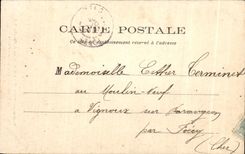 CARTE POSTALE
Ce côté est exclusivement réservé à l'adresse
Mademoiselle Esther Terminet
au Moulin-Neuf
à Vignoux sur Barangeon
par Foëcy
(Cher)